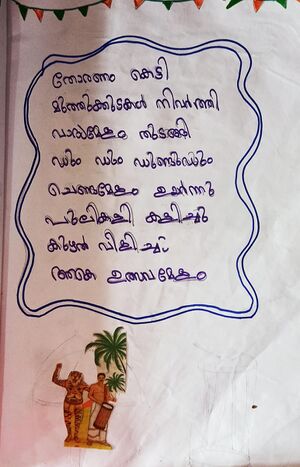 തോരണം കെട്ടി
മുത്തുക്കുടകൾ നിവർത്തി
വാദ്യമേളം തുടങ്ങി
ഡും ഡും ഡുണ്ടുഡും
ചെണ്ടമേളം ഉയർന്നു
പുലികളി കളിച്ചു
കുഴൽ വിളിച്ചു
അങ്ങനെ ഉത്സവമേളം